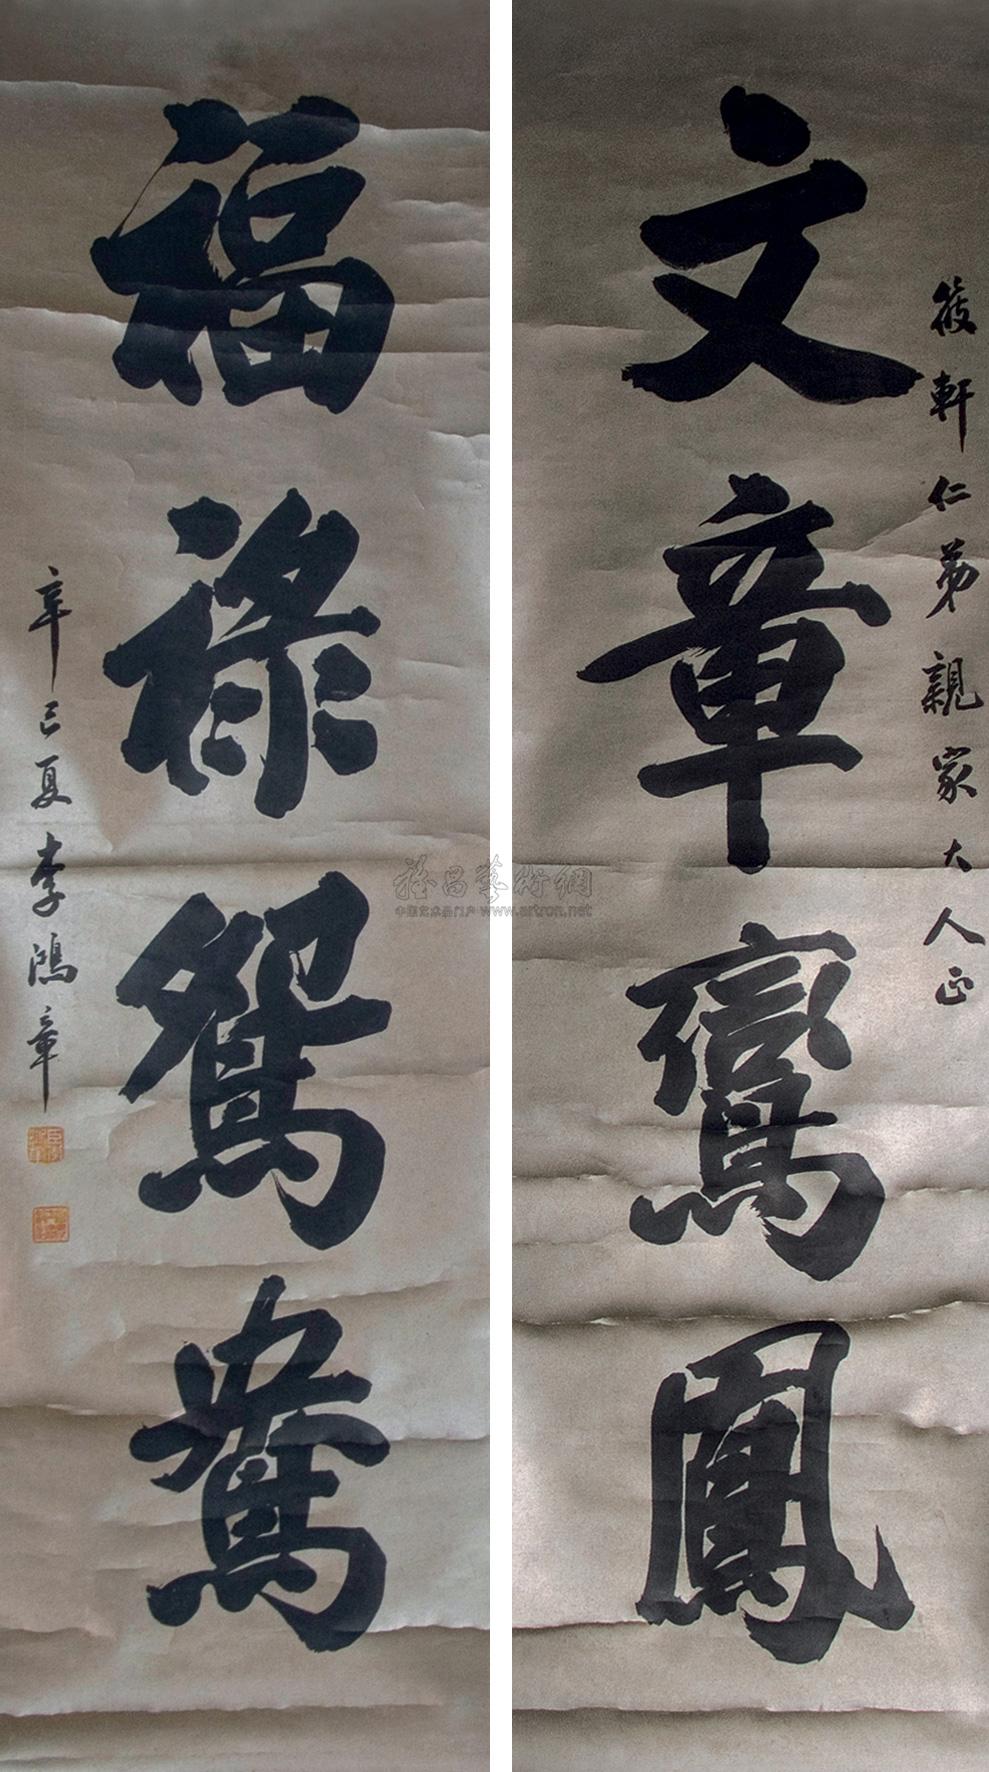 筱軒仁弟親家大人正
文章鸞鳳
福祿鴛鴦
辛巳夏李鴻章
雅昌藝術網
中国艺术品门户 www.artron.net